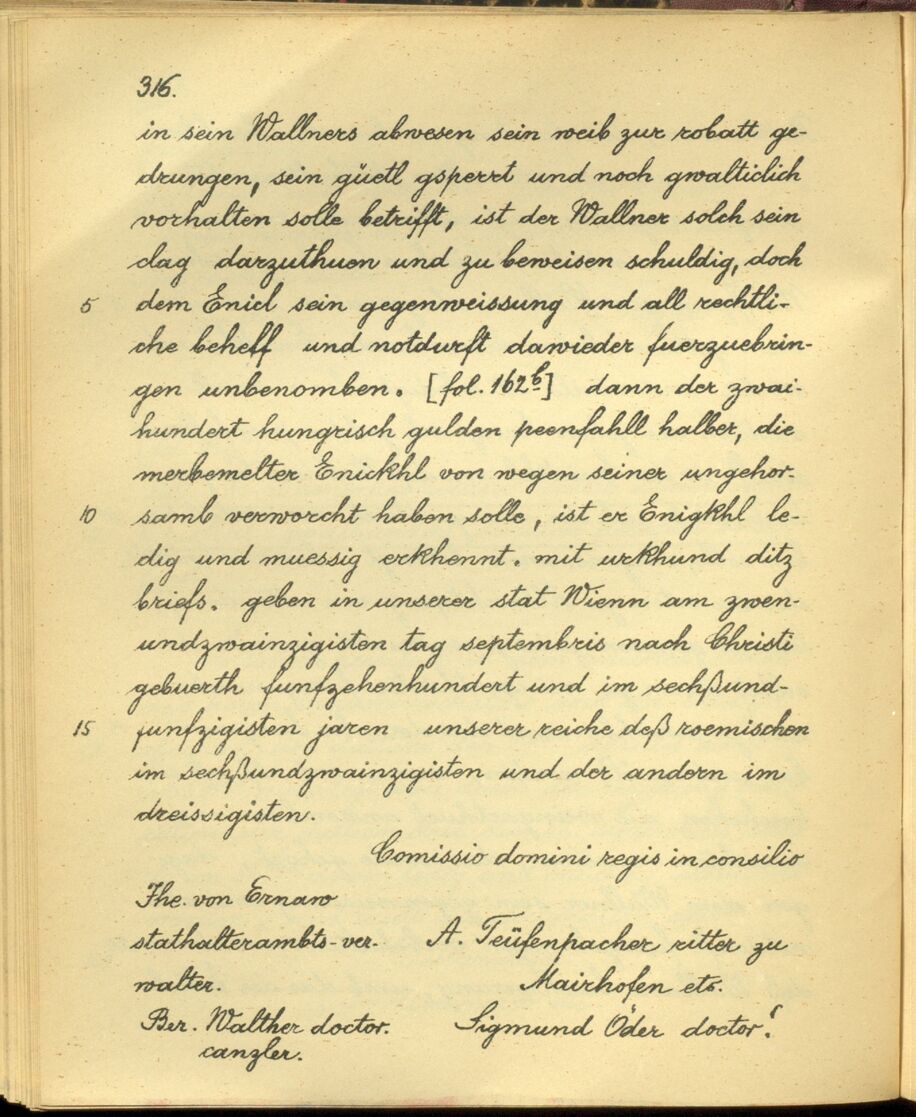 316.
in sein Wallners abwesen sein weib zur robatt ge-
drungen, sein güetl gsperrt und noch gwalticlich
vorhalten solle betrifft, ist der Wallner solch sein
clag darzuthuen und zu beweisen schuldig, doch
5 dem Enicl sein gegenweissung und all rechtli-
che beheff und notdurft dawieder fuerzuebrin-
gen unbenomben. [fol. 162b] dann der zwai-
hundert hungrisch gulden peenfahll halber, die
merbemelter Enickhl von wegen seiner ungehor-
10 samb verworcht haben solle, ist er Enigkhl le-
dig und muessig erkhennt. mit urkhund ditz
briefs. geben in unserer stat Wienn am zwen-
undzwainzigisten tag septembris nach Christi
gebuerth funfzehenhundert und im sechßund-
15 funfzigisten jaren unserer reiche deß roemischen
im sechßundzwainzigisten und der andern im
dreissigisten.
Comissio domini regis in consilio
Jhe. von Ernaw
stathalterambts-ver- A. Teüfenpacher ritter zu
walter. Mairhofen etc.
Ber. Walther doctor. Sigmund Öder doctor.
canzler.